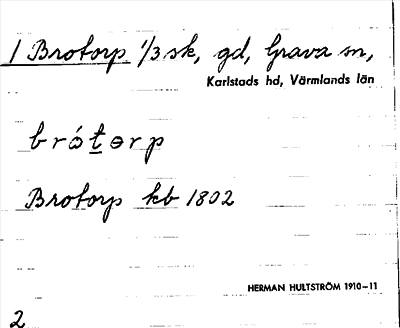 1 Brotorp 1/3 sk, gd, Grava sn,
Karlstads hd, Värmlands län
brótɵrp
Brotorp kb 1802
HERMAN HULTSTRÖM 1910–11
2